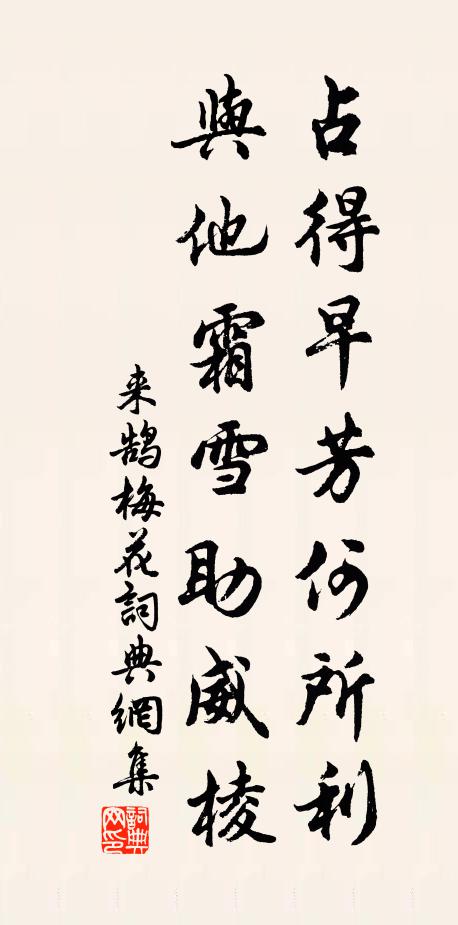 占得早芳何所利
與他霜雪助威棱
来鹄梅花詞典網集
詞典網印